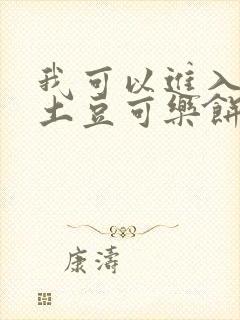 我可以進入
土豆可樂餅
康濤